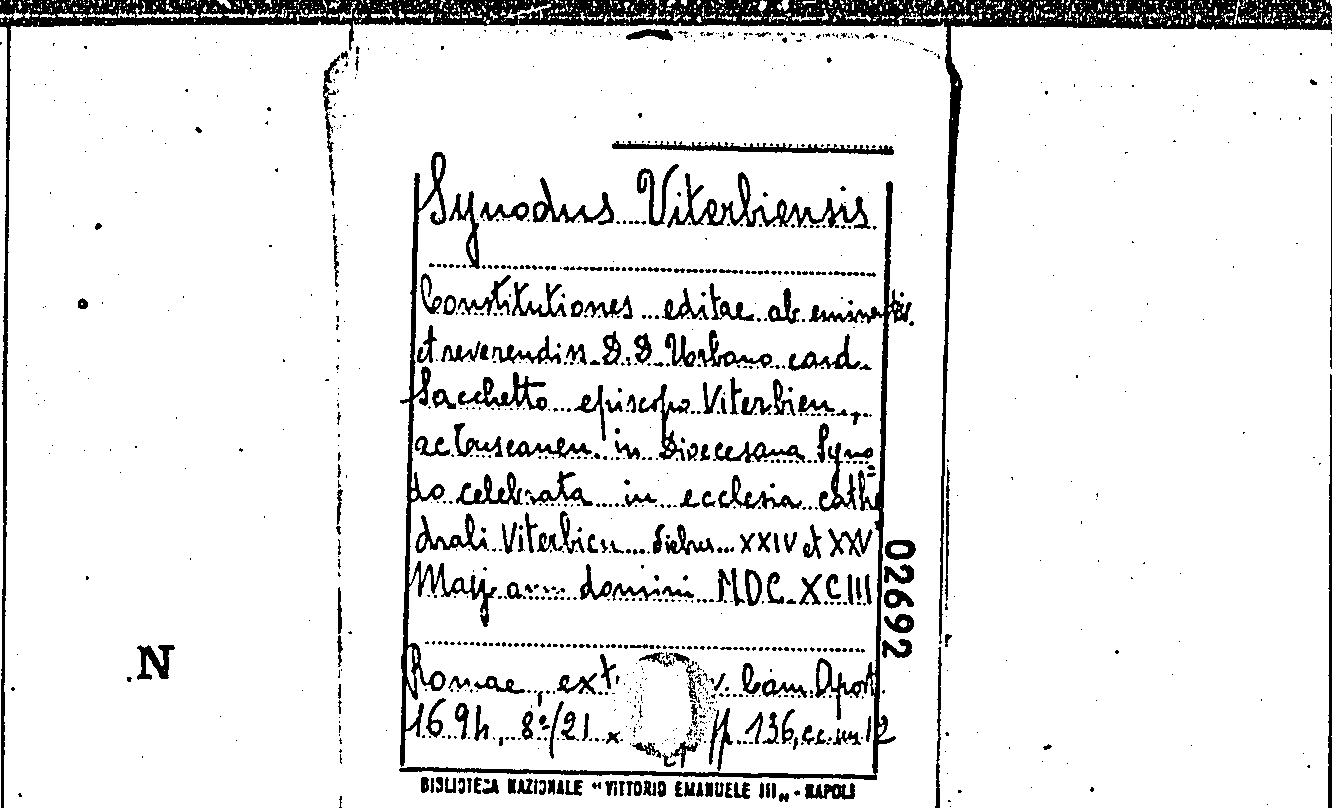 Synodus Viterbiensis
Constitutiones editae ab eminentis.
et reverendiss. D. D. Urbano card.
Sacchetto episcopo Viterbien.,
ac Tuscanen. in Dioecesana Syno=
do celebrata in ecclesia cathe
drali Viterbien. diebus XXIV et XXV
Maij domini MDC.XCIII
02692
Romae, ext. Cam. Apost.
1694, 8°/21 x p. 136, cc. nn 12
N
BIBLIOTECA NAZIONALE "VITTORIO EMANUELE III„ - NAPOLI